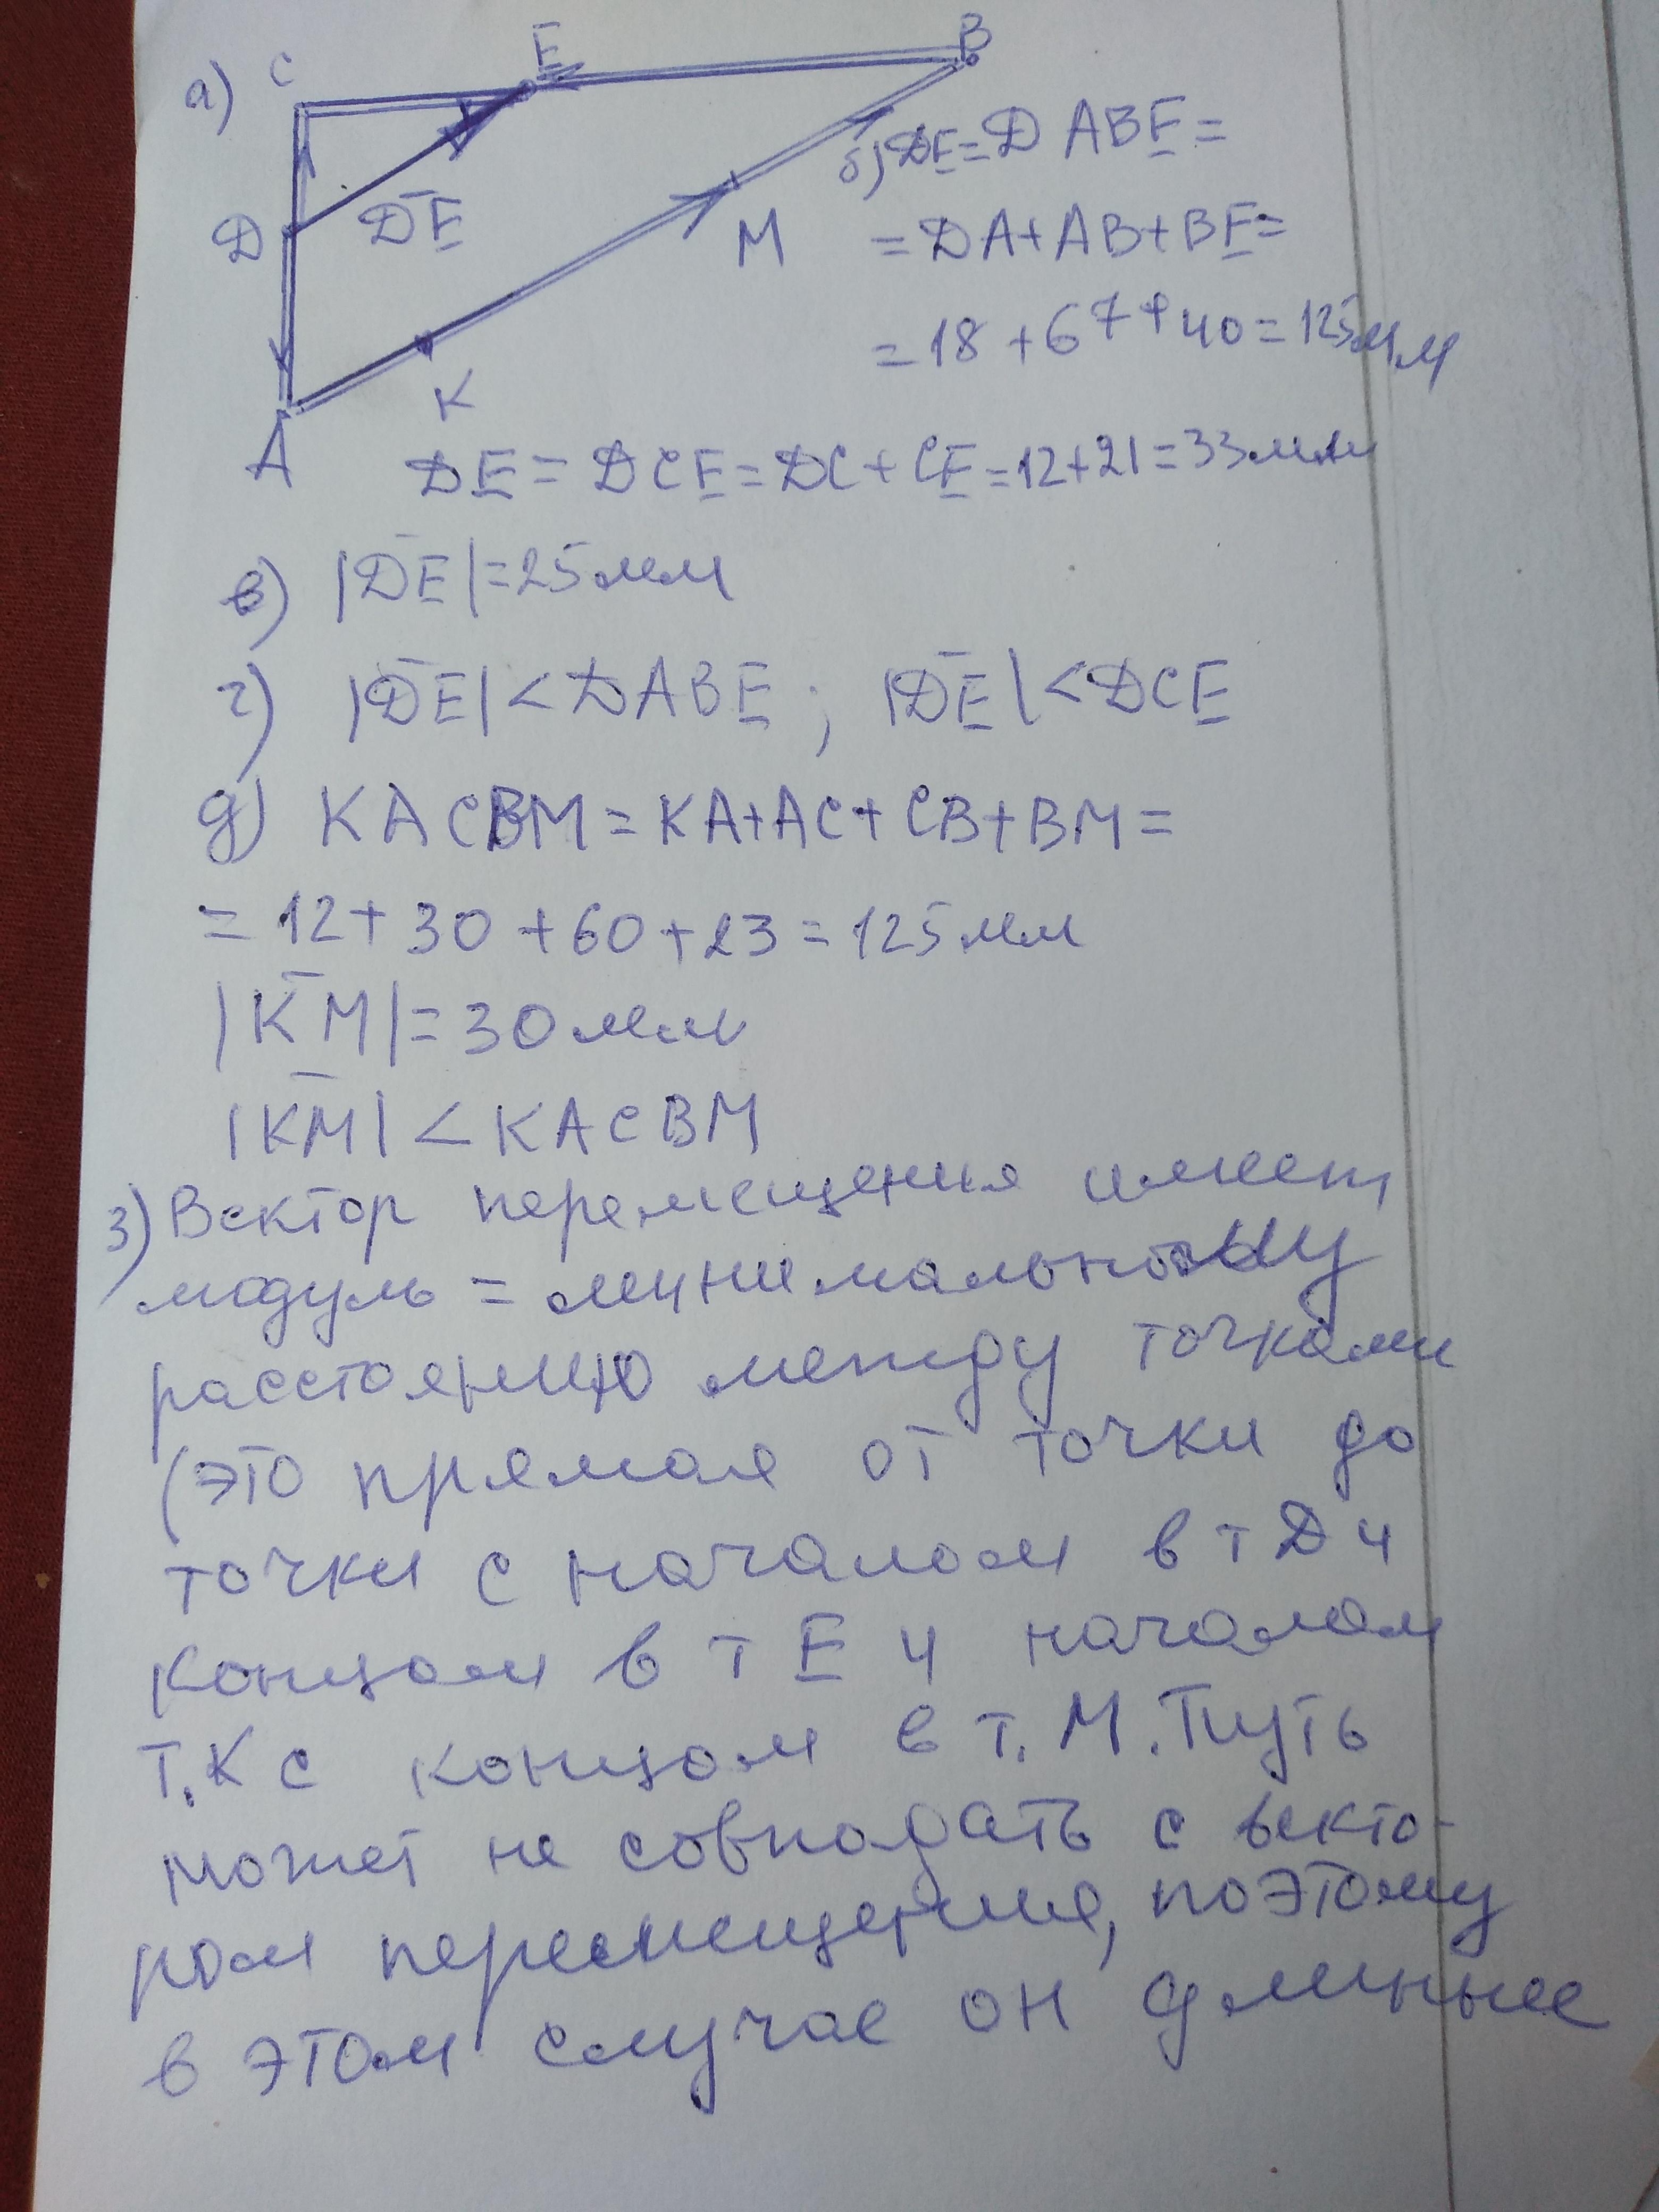 а) C E B
D D̅E̅ M K A
б) DE = DABE =
= DA + AB + BE =
= 18 + 67 + 40 = 125 мм
DE = DCE = DC + CE = 12 + 21 = 33 мм
в) |D̅E̅| = 25 мм
г) |D̅E̅| < DABE ; |D̅E̅| < DCE
д) KACBM = KA + AC + CB + BM =
= 12 + 30 + 60 + 23 = 125 мм
|K̅M̅| = 30 мм
|K̅M̅| < KACBM
з) Вектор перемещения имеет
модуль = минимальному
расстоянию между точками
(это прямая от точки до
точки с началом в т D и
концом в т E и началом
т. K с концом в т. M. Путь
может не совпадать с векто-
ром перемещения, поэтому
в этом случае он длиньее